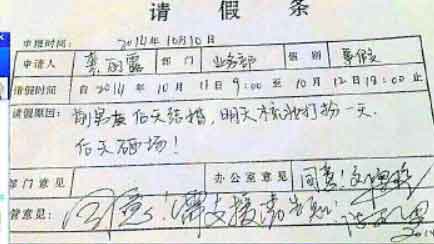 请假条
申报时间: 2014年10月10日
申请人 龚丽露 部门 业务部 假别 事假
请假时间 自2014年10月11日9:00至10月12日18:00止
请假原因: 前男友后天结婚,明天梳妆打扮一天.
后天砸场!
部门意见 办公室意见 同意!
管意见: 同意!需支援请告知!
2014